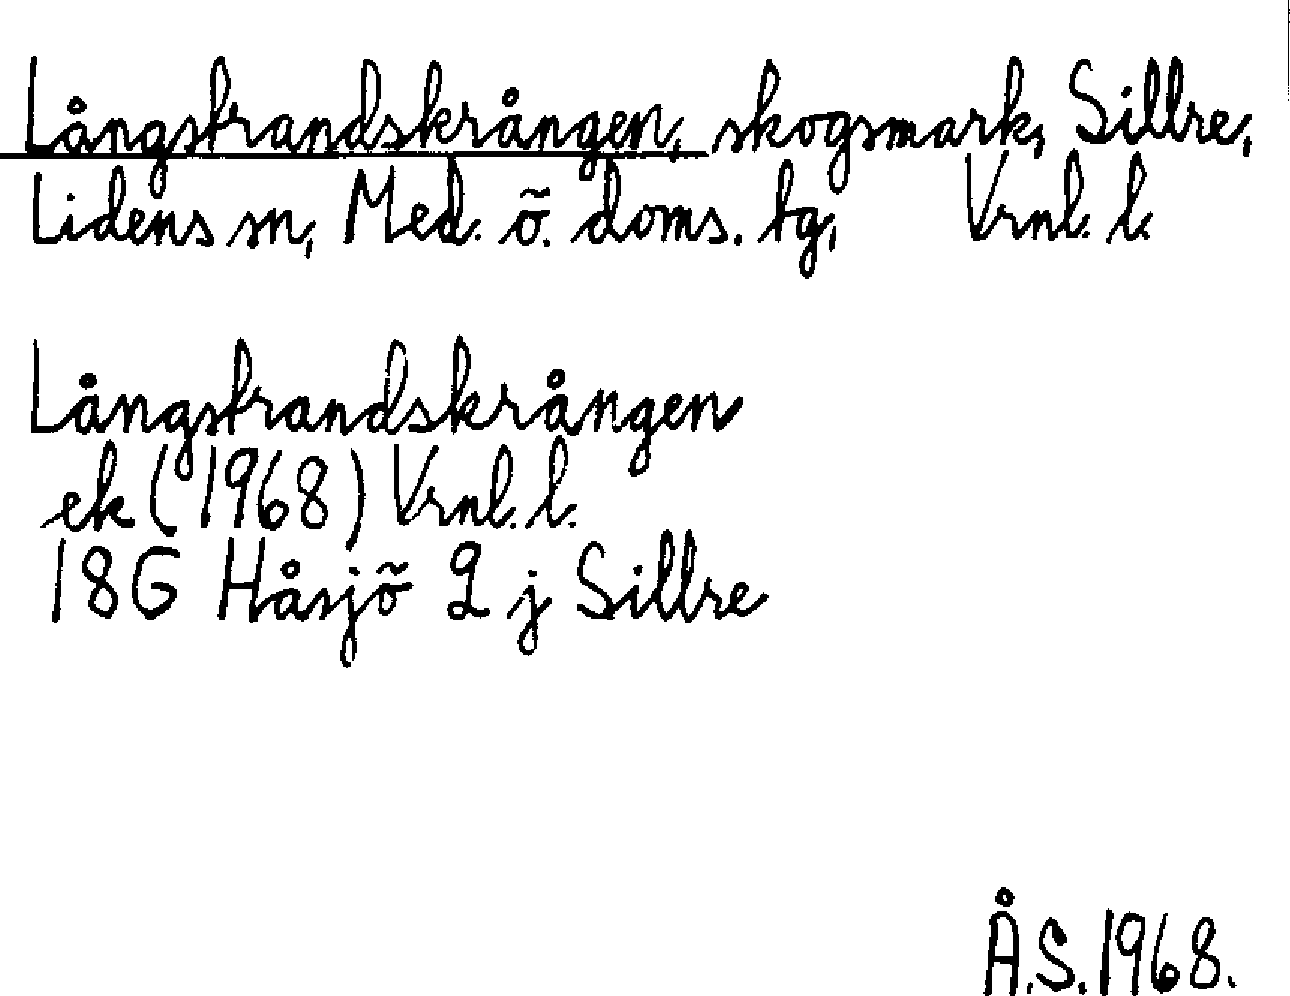 Långstrandskrången, skogsmark, Sillre,
Lidens sn, Med. ö. doms. tg, Vrnl. l.
Långstrandskrången
ek (1968) Vrnl. l.
18G Håsjö 2 j Sillre
Å.S. 1968.